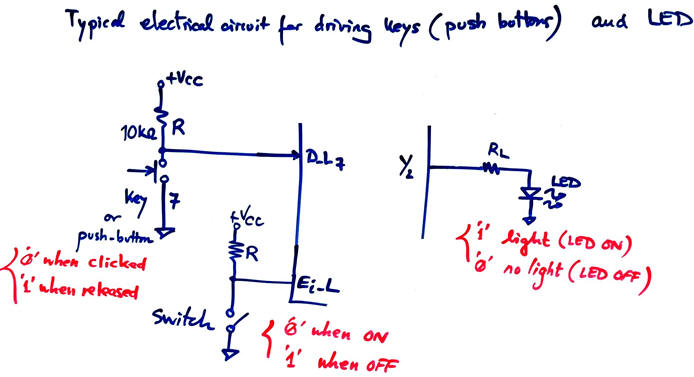 Typical electrical circuit for driving keys (push buttons) and LED
+Vcc
10kΩ R
D_L7
key 7
or
push-button
'0' when clicked
'1' when released
+Vcc
R
Ei_L
Switch
'0' when ON
'1' when OFF
Y2
RL
LED
'1' light (LED ON)
'0' no light (LED OFF)